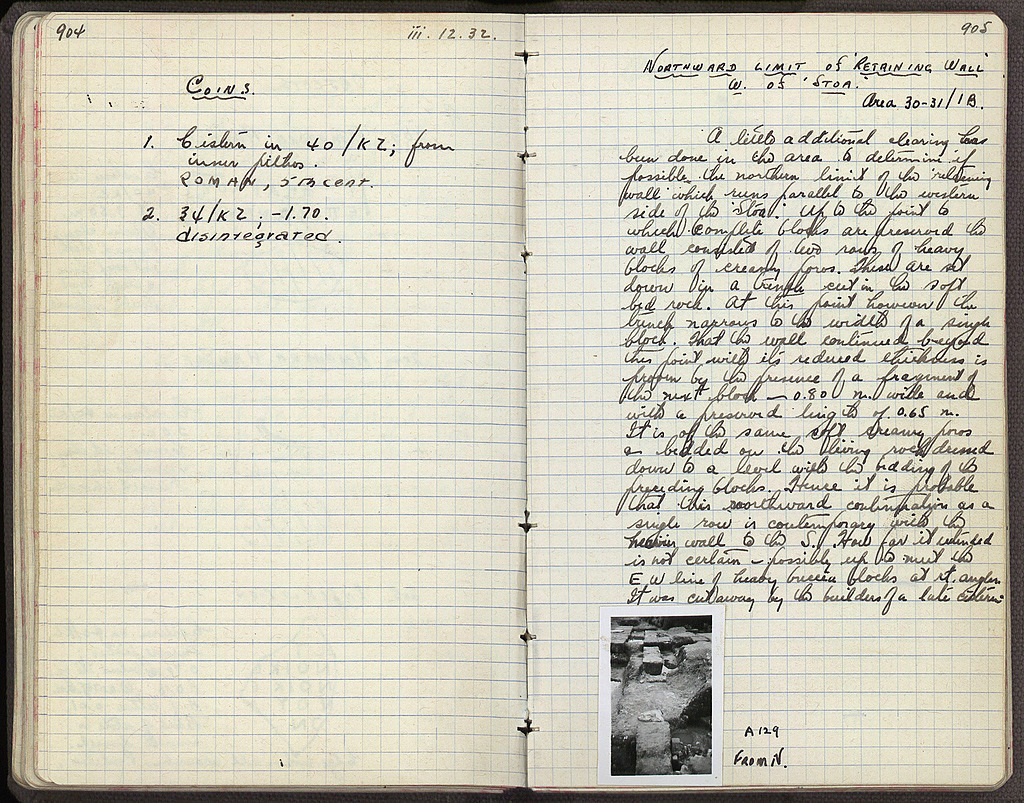 904
iii. 12. 32.
COINS.
1. Cistern in 40/KZ; from
inner pithos.
ROMAN, 5th cent.
2. 34/KZ; -1.70.
disintegrated.
905
NORTHWARD LIMIT OF 'RETAINING WALL'
W. OF 'STOA.'
Area 30-31/IB.
A little additional clearing has
been done in the area to determine if
possible the northern limit of the 'retaining
wall' which runs parallel to the western
side of the 'Stoa'. Up to the point to
which complete blocks are preserved the
wall consisted of two rows of heavy
blocks of creamy poros. These are set
down in a trench cut in the soft
bed rock. At this point however the
trench narrows to the width of a single
block. That the wall continued beyond
this point with its reduced thickness is
proven by the presence of a fragment of
the next block - 0.80 m. wide and
with a preserved length of 0.65 m.
It is of the same soft creamy poros
& bedded on the living rock dressed
down to a level with the bedding of the
preceding blocks. Hence it is probable
that this northward continuation as a
single row is contemporary with the
heavier wall to the S. How far it
is not certain - possibly up to meet the
E W line of heavy breccia blocks at rt. angles.
It was cut away by the builders of a late cistern
A129
From N.